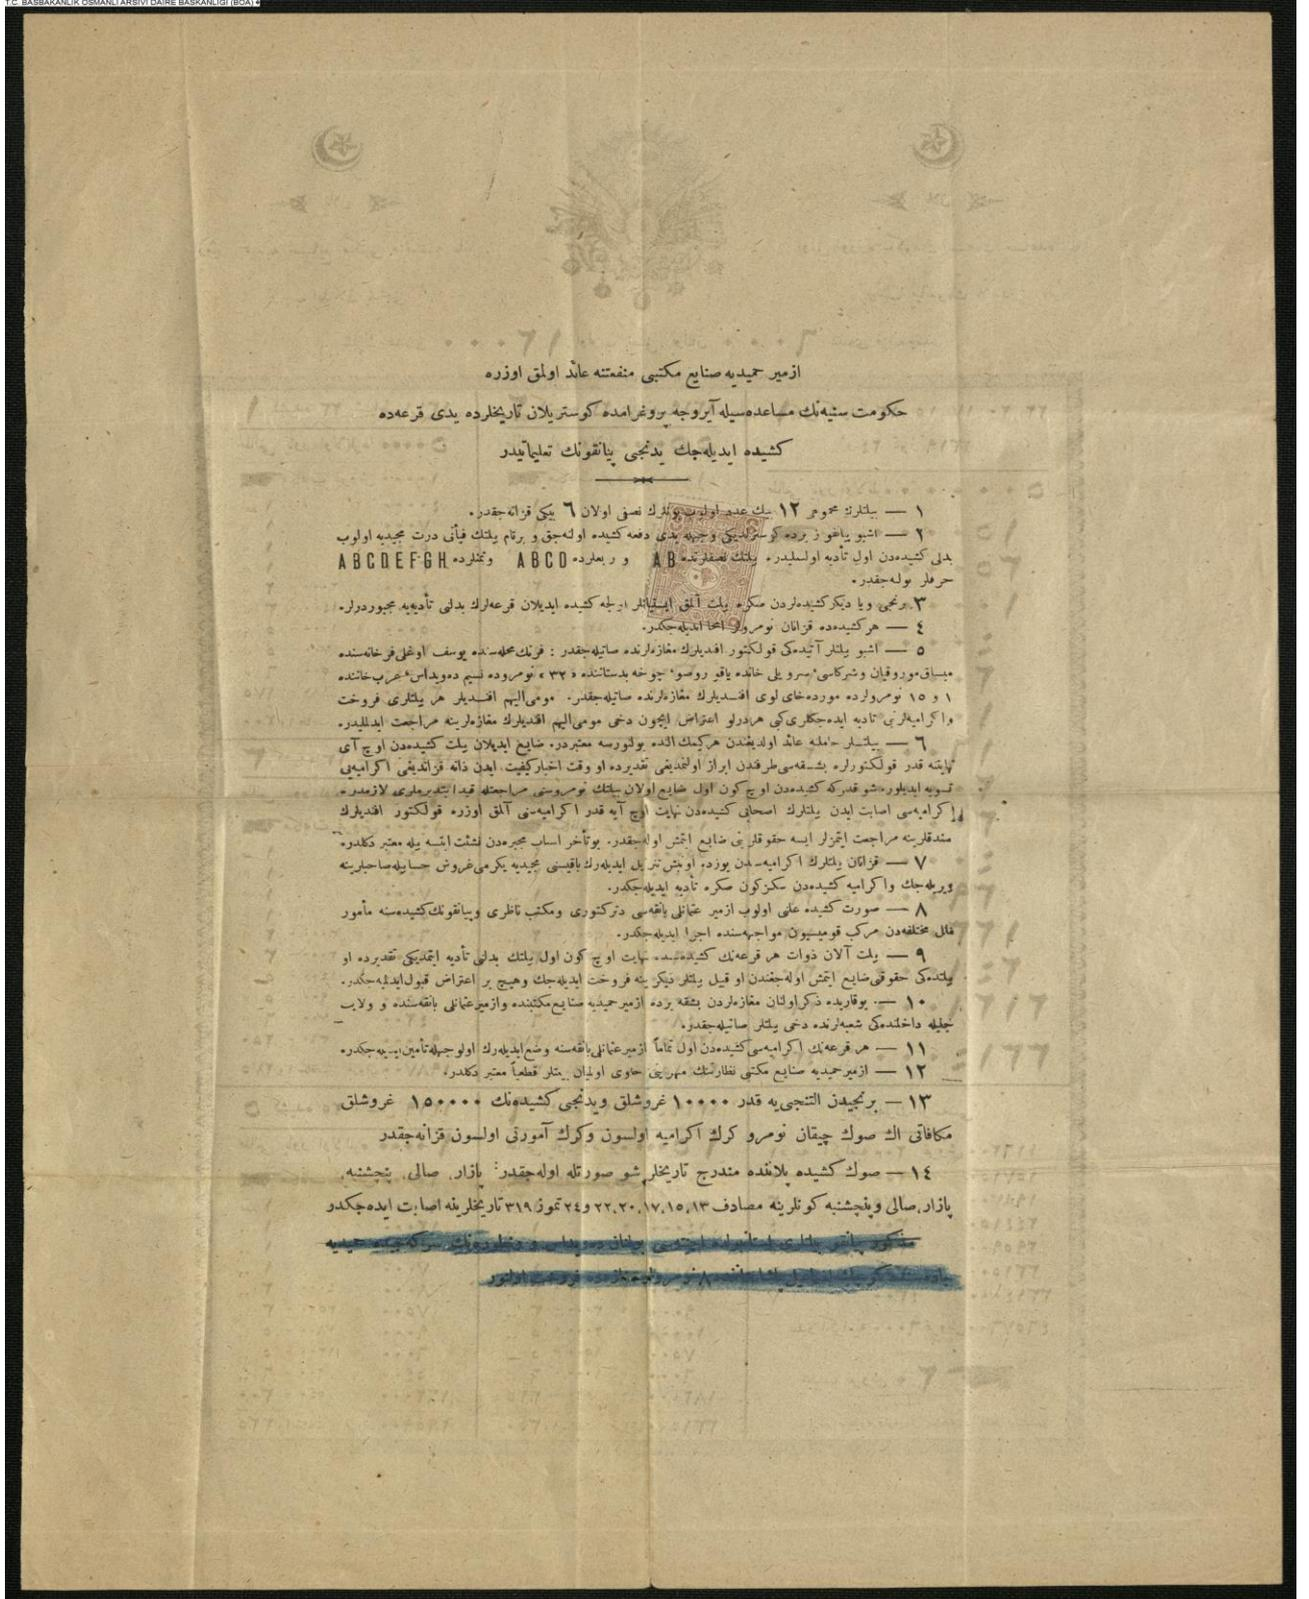 T.C. BAŞBAKANLIK OSMANLI ARŞİVİ DAİRE BAŞKANLIĞI (BOA)
ازمیر حمیدیه صنایع مكتبی منفعتنه عائد اولمق اوزره
حكومت سنیه‌نك مساعده‌سیله آیروجه پروغرامده كوستریلان تاریخلرده یدی قرعه‌ده
كشیده ایدیله‌جك یدنجی پیانقونك تعلیماتیدر
١ — بیلتلرك مجموعی ١٢ بیك عدد اولوب بونلرك نصفی اولان ٦ بیكی قزانه‌جقدر.
٢ — اشبو پیانقو زیرده كوسترلدیكی وجهله یدی دفعه كشیده اولنه‌جق و برتام بیلتك فیأتی درت مجیدیه اولوب
بدلی كشیده‌دن اول تأدیه اولنملیدر. بیلتك نصفلرنده AB و ربعلرده ABCD وثمنلرده ABCDEFGH
حرفلر بولنه‌جقدر.
٣ برنجی ویا دیكر كشیده‌لردن صكره بیلت آلمق ایستیانلر اولجه كشیده ایدیلان قرعه‌لرك بدلنی تأدیه‌یه مجبوردرلر.
٤ — هر كشیده‌ده قزانان نومرولر امحا ایدیله‌جكدر.
٥ — اشبو بیلتلر آتیده‌كی قولكتور افندیلرك مغازه‌لرنده صاتیله‌جقدر : فرنك محله‌سنده یوسف اوغلی فرخانه‌سنده
میساق موروقیان وشركاسی، سرویلی خانده یاقو روسو، چوخه بدستاننده « ٣٢ » نومروده نسیم ده‌ویداس، عرب خاننده
١ و ١٥ نومرولرده مورده‌خای لوی افندیلرك مغازه‌لرنده صاتیله‌جقدر. مومی الیهم افندیلر هر بیلتلری فروخت
واكرامیه‌لرنی تادیه ایده‌جكلری كبی هردرلو اعتراض ایچون دخی مومی الیهم افندیلرك مغازه‌لرینه مراجعت ایدلملیدر.
٦ — بیلتلر حامله عائد اولدیغندن هركیمك الده بولنورسه معتبردر. ضایع ایدیلان بیلت كشیده‌دن اوچ آی
نهایتنه قدر قولكتورلره بشقه‌سی طرفندن ابراز اولنمدیغی تقدیرده او وقت اخبار كیفیت ایدن ذاته قزاندیغی اكرامیه‌یی
تسویه ایدیلور. شو قدركه كشیده‌دن اوچ كون اول ضایع اولان بیلتك نومروسنی مراجعتله قید ایتدیرملری لازمدر.
اكرامیه‌سی اصابت ایدن بیلتلرك اصحابی كشیده‌دن نهایت اوچ آیه قدر اكرامیه‌سنی آلمق اوزره قولكتور افندیلرك
صندقلرینه مراجعت ایتمزلر ایسه حقوقلرینی ضایع ایتمش اوله‌جقدر. بوتأخر اسباب مجبره‌دن نشئت ایتسه بیله معتبر دكلدر.
٧ — قزانان بیلتلرك اكرامیه‌سندن یوزده اون‌بش تنزیل ایدیله‌رك باقیسنی مجیدیه یكرمی غروش حسابیله صاحبلرینه
ویریله‌جك واكرامیه كشیده‌دن سكز كون صكره تأدیه ایدیله‌جكدر.
٨ — صورت كشیده علنی اولوب ازمیر عثمانلی بانقه‌سی دیركتوری ومكتب ناظری وپیانقونك كشیده‌سنه مأمور
ملل مختلفه‌دن مركب قومیسیون مواجهه‌سنده اجرا ایدیله‌جكدر.
٩ — بیلت آلان ذوات هر قرعه‌نك كشیده‌سنده نهایت اوچ كون اول بیلتك بدلنی تأدیه ایتمدیكی تقدیرده او
بیلتده‌كی حقوقی ضایع ایتمش اوله‌جغندن او قبیل بیلتلر دیكرینه فروخت ایدیله‌جك وهیچ بر اعتراض قبول ایدلمیه‌جكدر.
١٠ — یوقاریده ذكر اولنان مغازه‌لردن بشقه بزده ازمیر حمیدیه صنایع مكتبنده وازمیر عثمانلی بانقه‌سنده و ولایت
جلیله داخلنده‌كی شعبه‌لرنده دخی بیلتلر صاتیله‌جقدر.
١١ — هر قرعه‌نك اكرامیه‌سی كشیده‌دن اول تماماً ازمیر عثمانلی بانقه‌سنه وضع ایدیله‌رك اولوجهله تأمین ایدیله‌جكدر.
١٢ — ازمیر حمیدیه صنایع مكتبی نظارتنك مهرینی حاوی اولمیان بیلتلر قطعیاً معتبر دكلدر.
١٣ — برنجیدن التنجی‌یه قدر ١٠٠٠٠ غروشلق ویدنجی كشیده‌نك ١٥٠٠٠٠ غروشلق
مكافاتی اك صوك چیقان نومرو كرك اكرامیه اولسون وكرك آمورتی اولسون قزانه‌جقدر
١٤ — صوك كشیده پلاننده مندرج تاریخلر شو صورتله اوله‌جقدر: پازار، صالی، پنچشنبه،
پازار، صالی وپنچشنبه كونلرینه مصادف ١٣،١٥،١٧،٢٠،٢٢ و٢٤ تموز ٣١٩ تاریخلرینه اصابت ایده‌جكدر